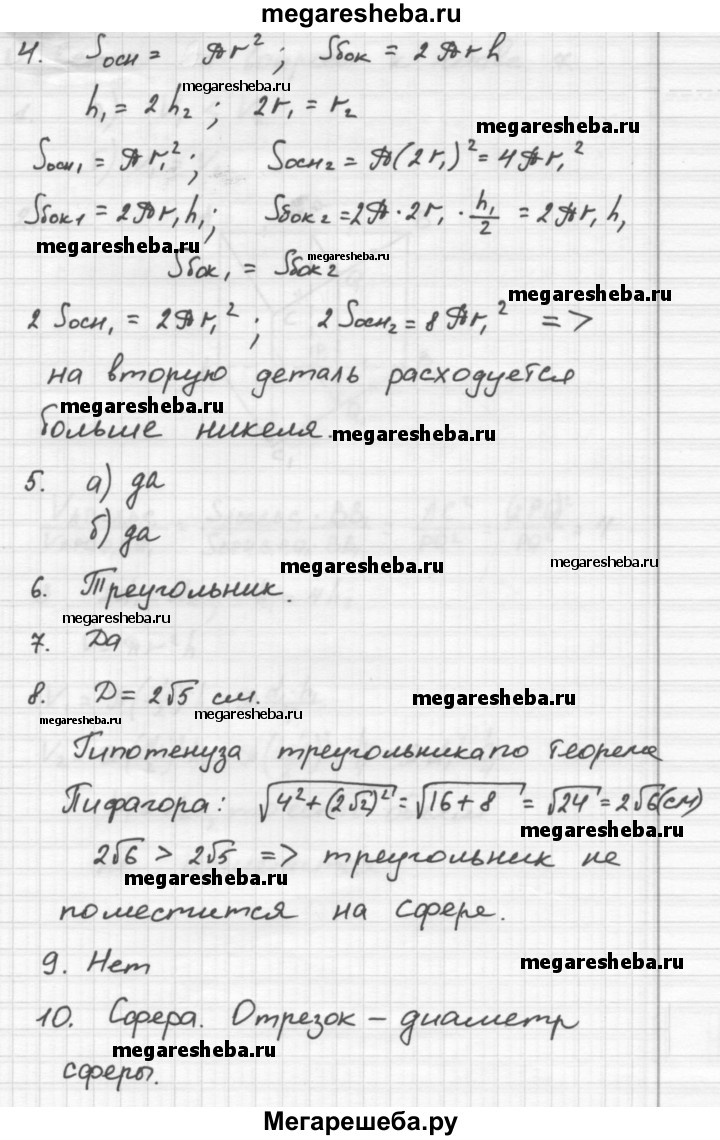 megaresheba.ru
4. Sосн = πr²; Sбок = 2πrh
megaresheba.ru
h₁ = 2h₂; 2r₁ = r₂
megaresheba.ru
Sосн₁ = πr₁²; Sосн₂ = π(2r₁)² = 4πr₁²
Sбок1 = 2πr₁h₁; Sбок2 = 2π · 2r₁ · h₁/2 = 2πr₁h₁
megaresheba.ru
Sбок₁ = Sбок2
megaresheba.ru
2Sосн₁ = 2πr₁²; 2Sосн₂ = 8πr₁² =>
на вторую деталь расходуется
megaresheba.ru
больше никеля.
megaresheba.ru
5. а) да
б) да
megaresheba.ru
megaresheba.ru
6. Треугольник.
megaresheba.ru
7. Да
8. D = 2√5 см.
megaresheba.ru
megaresheba.ru
megaresheba.ru
Гипотенуза треугольника по теореме
Пифагора: √(4²+(2√2)²) = √(16+8) = √24 = 2√6(см)
megaresheba.ru
2√6 > 2√5 => треугольник не
megaresheba.ru
поместится на сфере.
9. Нет
megaresheba.ru
10. Сфера. Отрезок – диаметр
megaresheba.ru
сферы.
Мегарешеба.ру